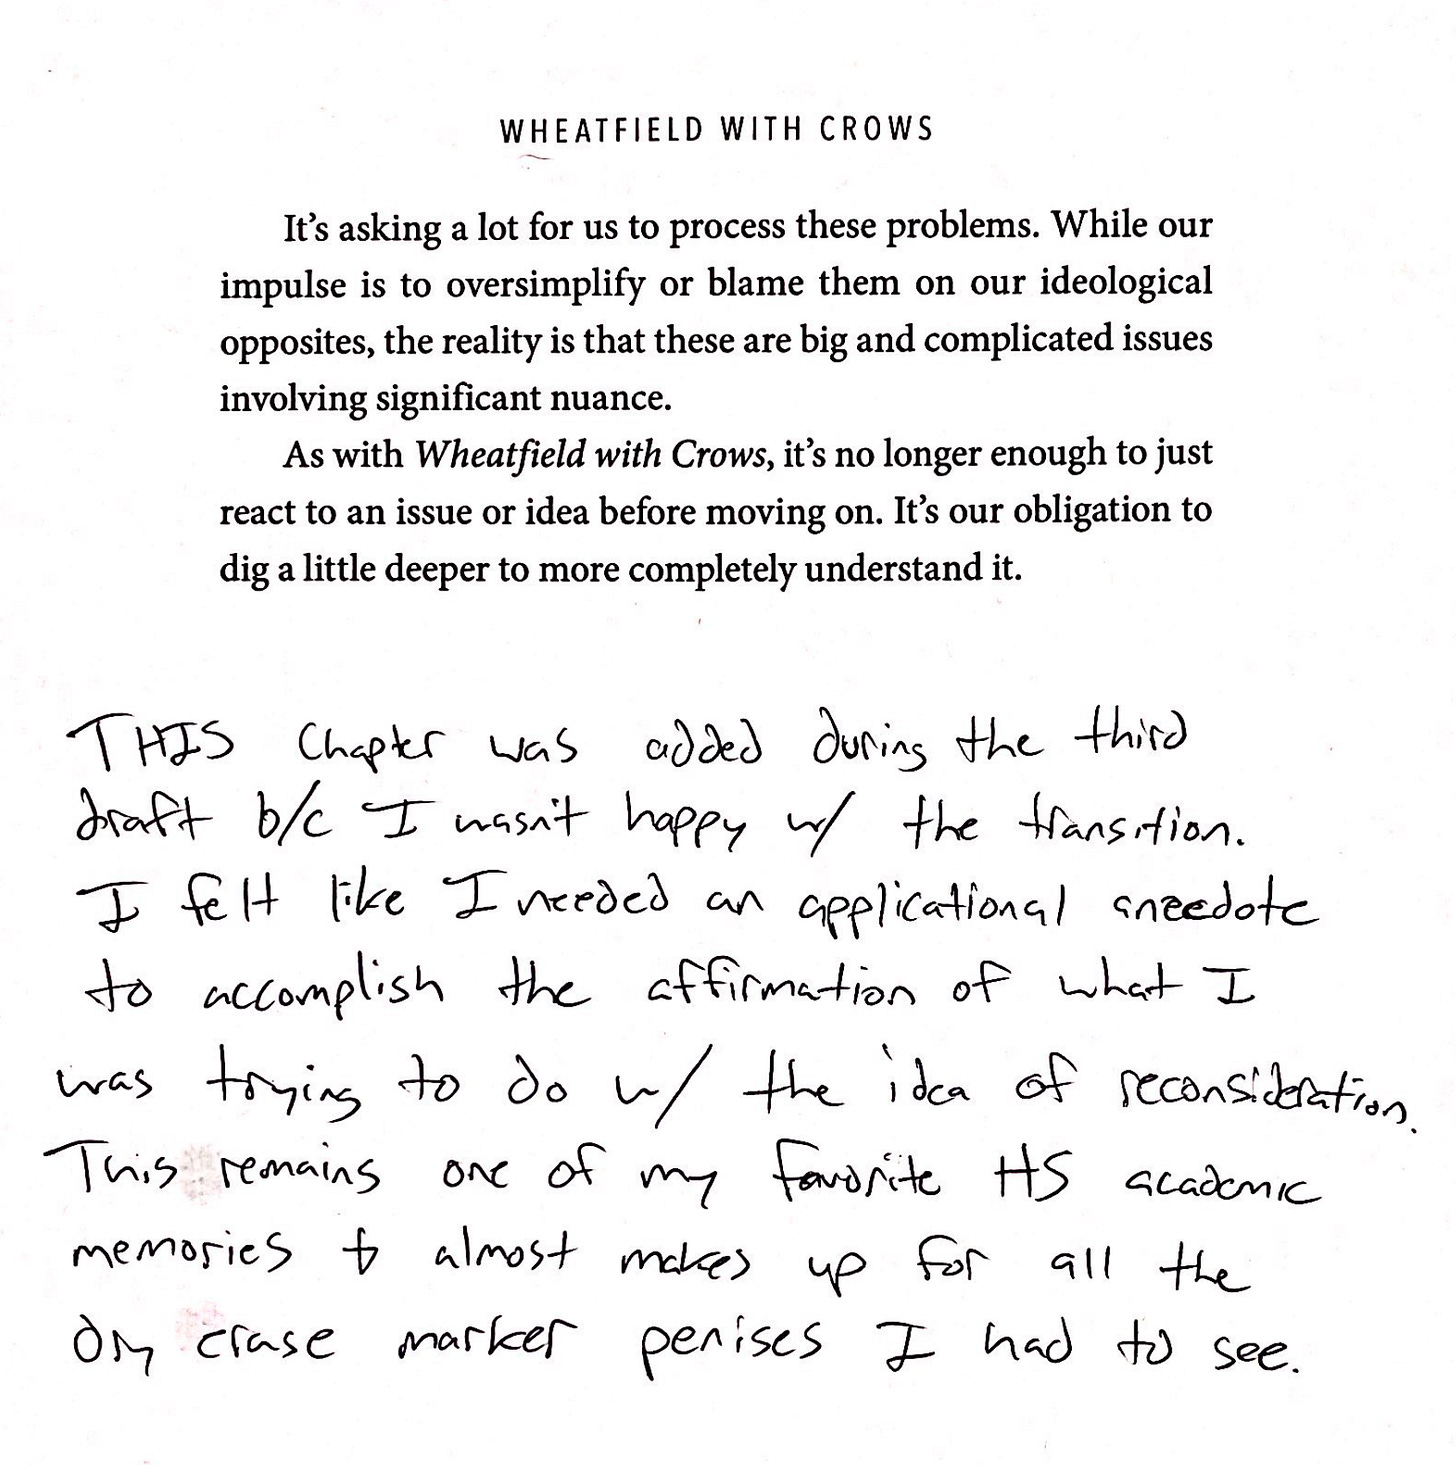 WHEATFIELD WITH CROWS
It's asking a lot for us to process these problems. While our
impulse is to oversimplify or blame them on our ideological
opposites, the reality is that these are big and complicated issues
involving significant nuance.
As with Wheatfield with Crows, it's no longer enough to just
react to an issue or idea before moving on. It's our obligation to
dig a little deeper to more completely understand it.
THIS Chapter was added during the third
draft b/c I wasn't happy w/ the transition.
I felt like I needed an applicational anecdote
to accomplish the affirmation of what I
was trying to do w/ the idea of reconsideration.
This remains one of my favorite HS academic
memories & almost makes up for all the
dry erase marker penises I had to see.